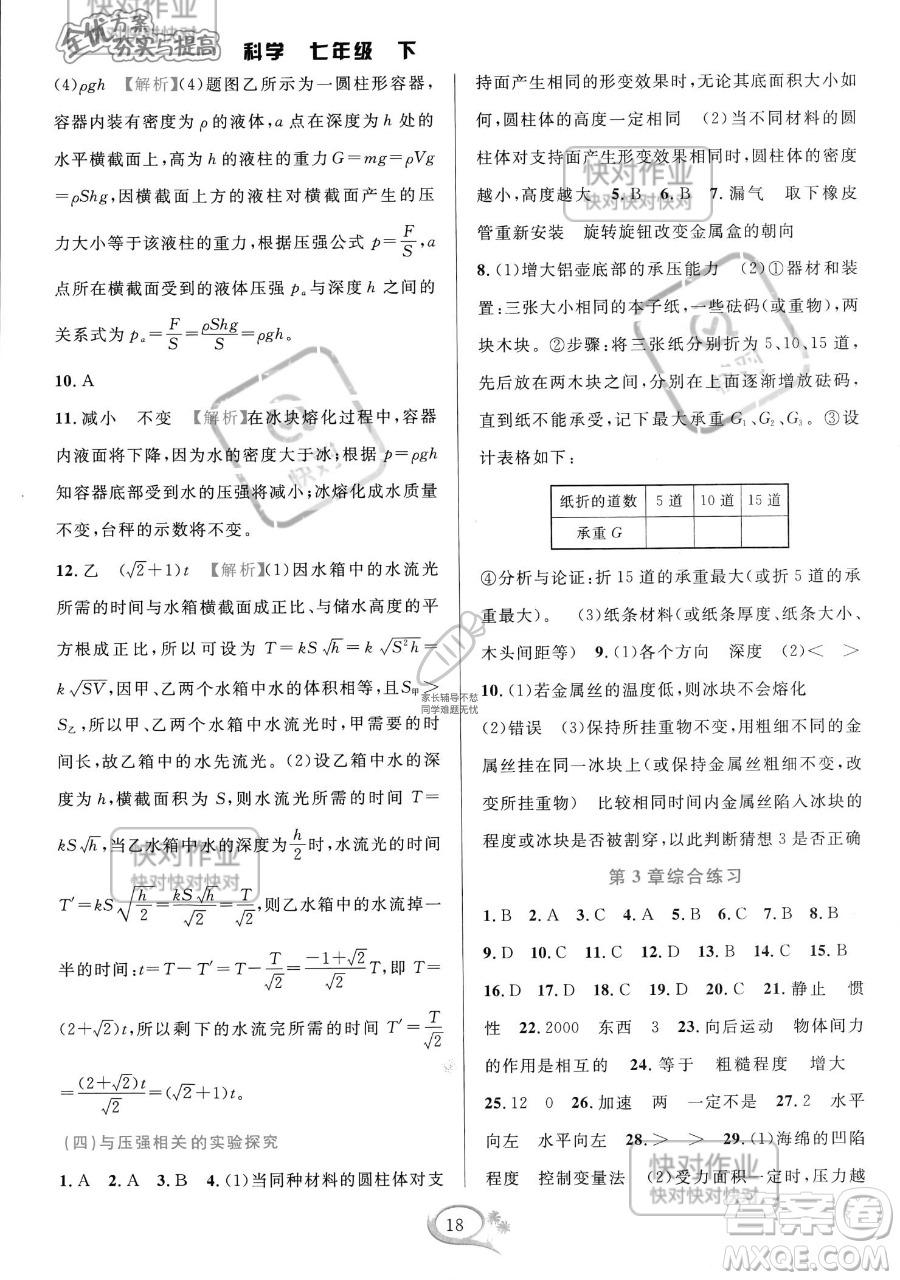 全优方案
夯实与提高
科学 七年级 下
(4)ρgh 【解析】(4)题图乙所示为一圆柱形容器，
容器内装有密度为ρ的液体，a 点在深度为 h 处的
水平横截面上，高为 h 的液柱的重力 G＝mg＝ρVg
＝ρShg，因横截面上方的液柱对横截面产生的压
力大小等于该液柱的重力，根据压强公式 p＝F/S，a
点所在横截面的液体压强 pₐ与深度 h 之间的
关系式为 pₐ＝F/S＝ρShg/S＝ρgh。
10. A
11. 减小 不变 【解析】在冰块熔化过程中，容器
内液面将下降，因为水的密度大于冰；根据 p＝ρgh
知容器底部受到水的压强将减小；冰熔化成水质量
不变，台秤的示数将不变。
12. 乙 (√2＋1)t 【解析】(1)因水箱中的水流光
所需的时间与水箱横截面成正比、与储水高度的平
方根成正比，所以可设为 T＝kS√h＝k √(S²h)＝
k√(SV)，因甲、乙两个水箱中水的体积相等，且S甲＞
S乙，所以甲、乙两个水箱中水流光时，甲需要的时
间长，故乙箱中的水先流光。(2)设乙箱中水的深
度为 h，横截面积为 S，则水流光所需的时间 T＝
kS√h，当乙水箱中水的深度为h/2时，水流光的时间
T′＝kS√(h/2)＝kS√h/√2＝T/√2，则乙水箱中的水流掉一
半的时间：t＝T－T′＝T－T/√2＝(－1＋√2)/√2 T，即 T＝
(2＋√2)t，所以剩下的水流完所需的时间 T′＝T/√2
＝(2＋√2)t/√2＝(√2＋1)t。
(四)与压强相关的实验探究
1. A 2. A 3. B 4. (1)当同种材料的圆柱体对支
持面产生相同的形变效果时，无论其底面积大小如
何，圆柱体的高度一定相同 (2)当不同材料的圆
柱体对支持面产生形变效果相同时，圆柱体的密度
越小，高度越大 5. B 6. B 7. 漏气 取下橡皮
管重新安装 旋转旋钮改变金属盒的朝向
8. (1)增大铝壶底部的承压能力 (2)①器材和装
置：三张大小相同的本子纸，一些砝码(或重物)，两
块木块。②步骤：将三张纸分别折为 5、10、15 道，
然后放在两木块上，在上面逐渐增放砝码，
直到纸不能承受，记下最大承重 G₁、G₂、G₃。③设
计表格如下：
纸折的道数 5 道 10 道 15 道
承重 G
④分析与论证：折 15 道的承重最大(或折 5 道的承
重最大)。 (3)纸条材料(或纸条厚度、纸条大小、
木头间距等) 9. (1)各个方向 深度 (2)＜ ＞
10. (1)若金属丝的温度低，则冰块不会熔化
(2)错误 (3)保持所挂重物不变，用粗细不同的金
属丝挂在同一冰块上(或保持金属丝粗细不变，改
变所挂重物) 比较相同时间内金属丝陷入冰块的
程度或冰块是否被割穿，以此判断猜想 3 是否正确
第 3 章综合练习
1. B 2. A 3. C 4. A 5. B 6. C 7. B 8. B
9. D 10. A 11. D 12. A 13. B 14. C 15. B
16. D 17. D 18. D 19. D 20. C 21. 静止 惯
性 22. 2000 东西 3 23. 向后运动 物体间力
的作用是相互的 24. 等于 粗糙程度 增大
25. 12 0 26. 加速 两 一定不是 27. 2 水平
向左 水平向左 28. ＞ ＞ 29. (1)海绵的凹陷
程度 控制变量法 (2)受力面积一定时，压力越
18
快对作业
快对快对快对
快对作业
快对快对快对
快对作业
快对快对快对
快对作业
快对快对快对
快对
家长辅导不愁
同学难题无忧
答案圈
MXQE.COM